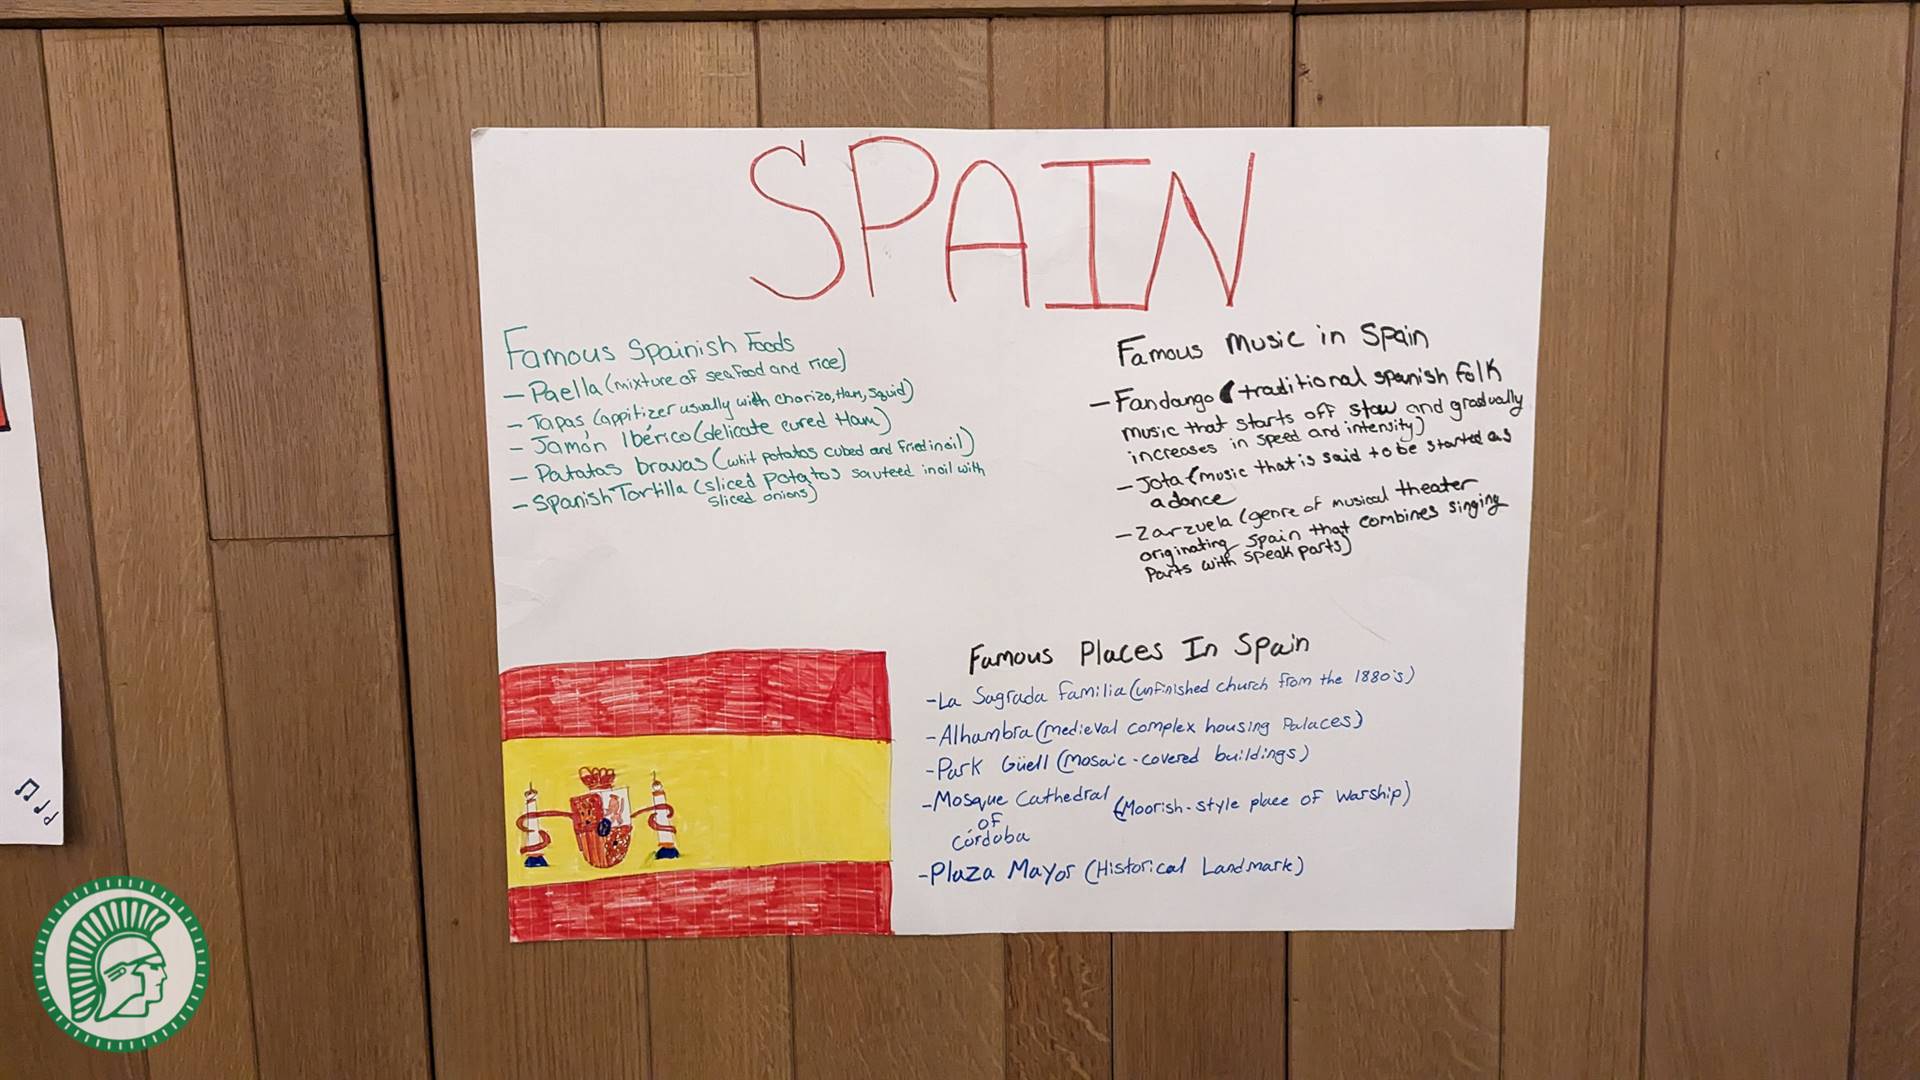 SPAIN
Famous Spainish Foods
- Paella (mixture of seafood and rice)
- Tapas (appitizer usually with chorizo, Ham, Squid)
- Jamón Ibérico (delicate cured Ham)
- Patatas bravas (whit potatos cubed and fried in oil)
- Spanish Tortilla (sliced potatos sauteed in oil with
sliced onions)
Famous Music in Spain
- Fandango (traditional spanish folk
music that starts off slow and gradually
increases in speed and intensity)
- Jota (music that is said to be started as
a dance
- Zarzuela (genre of musical theater
originating Spain that combines singing
Parts with speak parts)
Famous Places In Spain
- La Sagrada Familia (unfinished church from the 1880's)
- Alhambra (medieval complex housing Palaces)
- Park Güell (Mosaic-covered buildings)
- Mosque Cathedral (Moorish-style place of Warship)
of
Córdoba
- Plaza Mayor (Historical Landmark)